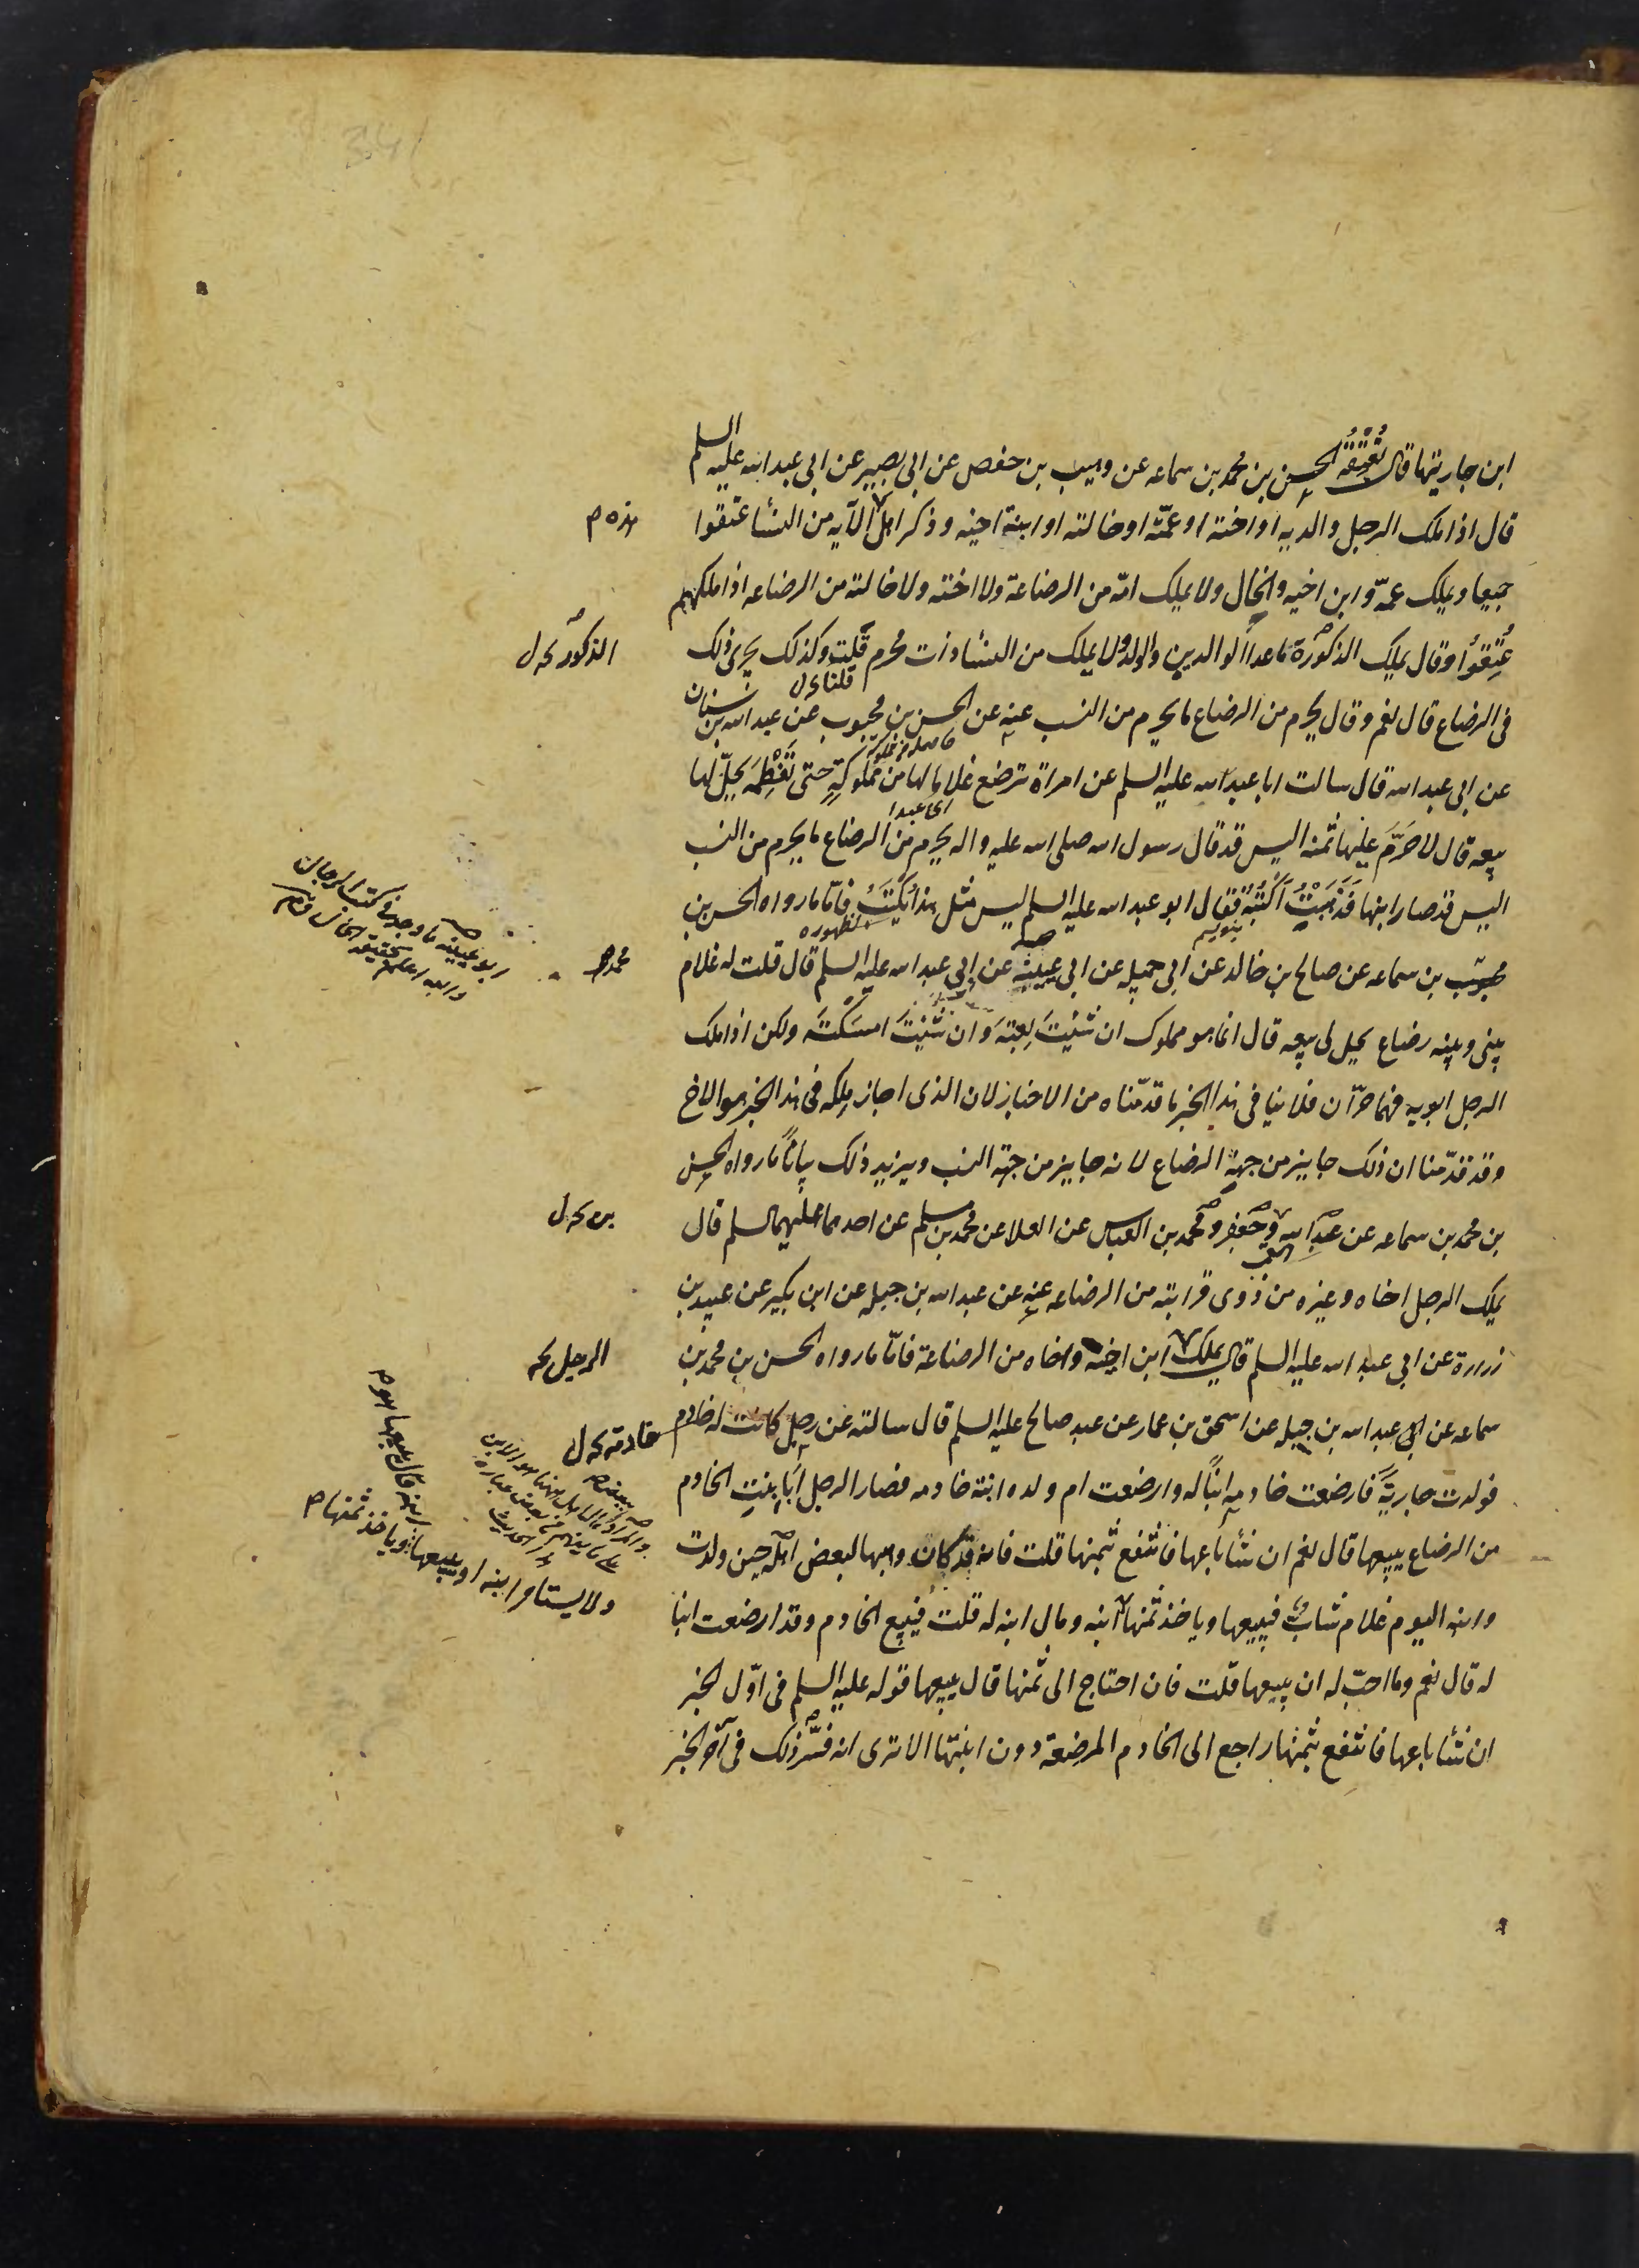 ابن جاريتها قال تعتقه الحسن بن محمد بن سماعه عن وهيب بن حفص عن ابى بصير عن ابى عبد الله عليه السلم
قال اذا ملك الرجل والديه او اخته او عمّته او خالته او ابنة اخيه وذكر اهل الآيه من النسا عتقوا
هذه م
جميعا ويملك عمّه وابن اخيه والخال ولا يملك امّه من الرضاعة ولا اخته ولا خالته من الرضاعه اذا ملكهم
عُتِقوُا وقال يملك الذكورة ما عدا الوالدين والولد ولا يملك من النسا ذات محرم قلت وكذلك يجرى ذلك
الذكور
قلنا
فى الرضاع قال نعم وقال يحرم من الرضاع ما يحرم من النسب عنه عن الحسن بن محبوب عن عبد الله بن سنان
عن ابى عبد الله قال سالت ابا عبد الله عليه السلم عن امراة ترضع غلاما لها من مملوكةٍ حتى تَفْطِمَه يحلّ لها
اى عبدا
بيعه قال لا حَرُمَ عليها ثمنه اليس قد قال رسول الله صلى الله عليه واله يحرم من الرضاع ما يحرم من النسب
اليس قد صار ابنها فَذَهَبْتُ اَكْتُبُه فقال ابو عبد الله عليه السلم ليس مثل هذا يُكْتَبُ فامّا ما رواه الحسن بن
لظهوره
محبوب بن سماعه عن صالح بن خالد عن ابى جميله عن ابى عيينه عن ابى عبد الله عليه السلم قال قلت له غلام
محمد
ابو عيينه ما وجدنا فى كتب الرجال
والله اعلم بحقيقة الحال
بينى وبينه رضاع يحل لى بيعه قال انما هو مملوك ان شئيتَ بعتَه وان شئيتَ امسكتَه ولكن اذا ملك
الرجل ابويه فهما حرّان فلا ينافى هذا الخبر ما قدّمناه من الاخبار لان الذى اجاز ملكه فى هذا الخبر هو الاخ
وقد قدّمنا ان ذلك جايز من جهة الرضاع لانه جايز من جهة النسب ويزيد ذلك بيانًا ما رواه الحسن
بن محمد بن سماعه عن عبد الله وجعفر ومحمد بن العباس عن العلا عن محمد بن مسلم عن احدهما عليهما السلم قال
بن
يملك الرجل اخاه وغيره من ذوى قرابته من الرضاعه عنه عن عبد الله بن جبله عن ابن بكير عن عبيد بن
زرارة عن ابى عبد الله عليه السلم قال يملك ابن اخته واخاه من الرضاعة فامّا ما رواه الحسن بن محمد بن
الرجل
سماعه عن ابى عبد الله بن جبله عن اسحق بن عمار عن عبد صالح عليه السلم قال سالته عن رجل كانت له خادم
خادمة
فولدت جاريةً فارضعت خادمه ابناً له وارضعت ام ولده ابنة خادمه فصار الرجل اَبَا بنتِ الخادم
من الرضاع يبيعها قال نعم ان شاء باعها فانتفع بثمنها قلت فانه قد كان وهبها لبعض اهله حين ولدت
وابنه اليوم غلام شابّ فيبيعها وياخذ ثمنها
قال يبيعها هو م
ولا يستامر ابنه او يبيعها ابنه وياخذ ثمنها م
ابنه ومال ابنه له قلت فيبيع الخادم وقد ارضعت ابنا
له قال نعم وما احبّ له ان يبيعها قلت فان احتاج الى ثمنها قال يبيعها قوله عليه السلم فى اوّل الخبر
ان شاء باعها فانتفع بثمنها راجع الى الخادم المرضعة دون ابنتها الا ترى انه فسّر ذلك فى آخر الخبر